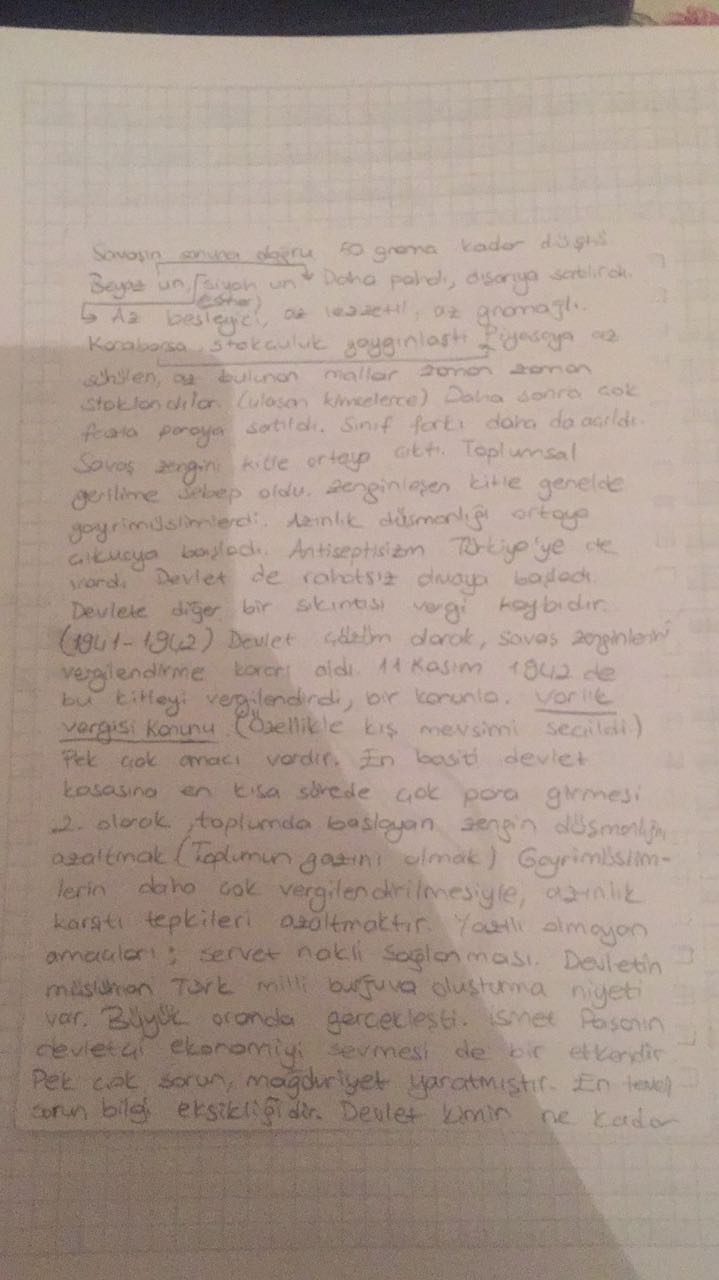 Savaşın sonuna doğru 50 grama kadar düştü
Beyaz un, siyah un Daha pahalı, dışarıya satılırdı.
(ester)
Az besleyici, az lezzetli, az gramajlı.
Karaborsa, stokçuluk yaygınlaştı Piyasaya az
sürülen, az bulunan mallar zaman zaman
stoklandılar. (ulaşan kimselerce) Daha sonra çok
fazla paraya satıldı. Sınıf farkı daha da açıldı.
Savaş zengini kitle ortaya çıktı. Toplumsal
gerilime sebep oldu. Zenginleşen kitle genelde
gayrimüslimlerdi. Azınlık düşmanlığı ortaya
çıkmaya başladı. Antiseptisizm Türkiye'ye de
vardı Devlet de rahatsız olmaya başladı.
Devlete diğer bir sıkıntısı vergi kaybıdır.
(1941-1942) Devlet çözüm olarak, savaş zenginlerini
vergilendirme kararı aldı. 11 Kasım 1942 de
bu kitleyi vergilendirdi, bir kanunla. Varlık
vergisi Kanunu. (Özellikle kış mevsimi seçildi)
Pek çok amacı vardır. En basiti devlet
kasasına en kısa sürede çok para girmesi
2. olarak, toplumda başlayan zengin düşmanlığını
azaltmak (Toplumun gazını almak) Gayrimüslim-
lerin daha çok vergilendirilmesiyle, azınlık
karşıtı tepkileri azaltmaktır. Yazılı olmayan
amaçları; servet nakli sağlanması. Devletin
müslüman Türk milli burjuva oluşturma niyeti
var. Büyük oranda gerçekleşti. İsmet Paşanın
devletçi ekonomiyi sevmesi de bir etkendir
Pek çok sorun, mağduriyet yaratmıştır. En temel
sorun bilgi eksikliğidir. Devlet kimin ne kadar